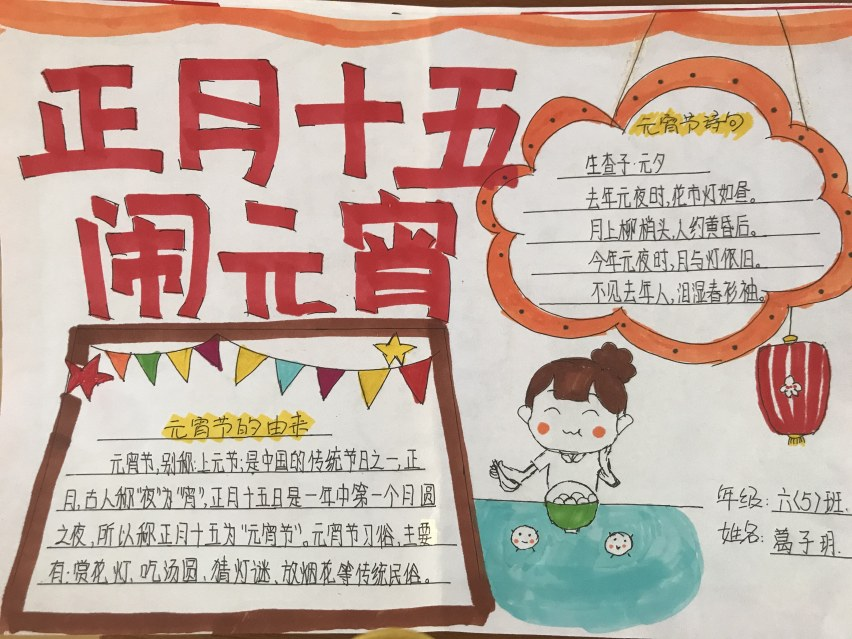 正月十五
闹元宵
元宵节诗句
生查子·元夕
去年元夜时,花市灯如昼。
月上柳梢头,人约黄昏后。
今年元夜时,月与灯依旧。
不见去年人,泪湿春衫袖。
元宵节的由来
元宵节,别称:上元节;是中国的传统节日之一,正
月,古人称“夜”为“宵”,正月十五日是一年中第一个月圆
之夜,所以称正月十五为“元宵节”。元宵节习俗,主要
有:赏花灯、吃汤圆、猜灯谜、放烟花等传统民俗。
年级:六(5)班.
姓名:葛子玥.